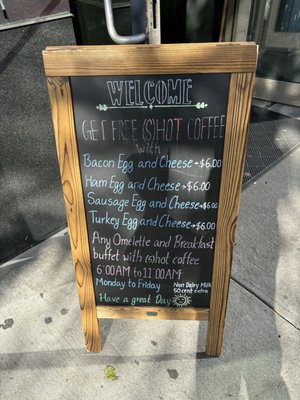 WELCOME
GET FREE (S)HOT COFFEE
with
Bacon Egg and Cheese→$6.00
Ham Egg and Cheese→$6.00
Sausage Egg and Cheese→$6.00
Turkey Egg and Cheese→$6.00
Any Omelette and Breakfast
buffet with (s)hot coffee
6:00AM to 11:00AM
Monday to Friday
Non Dairy Milk
50cent extra
Have a great Day